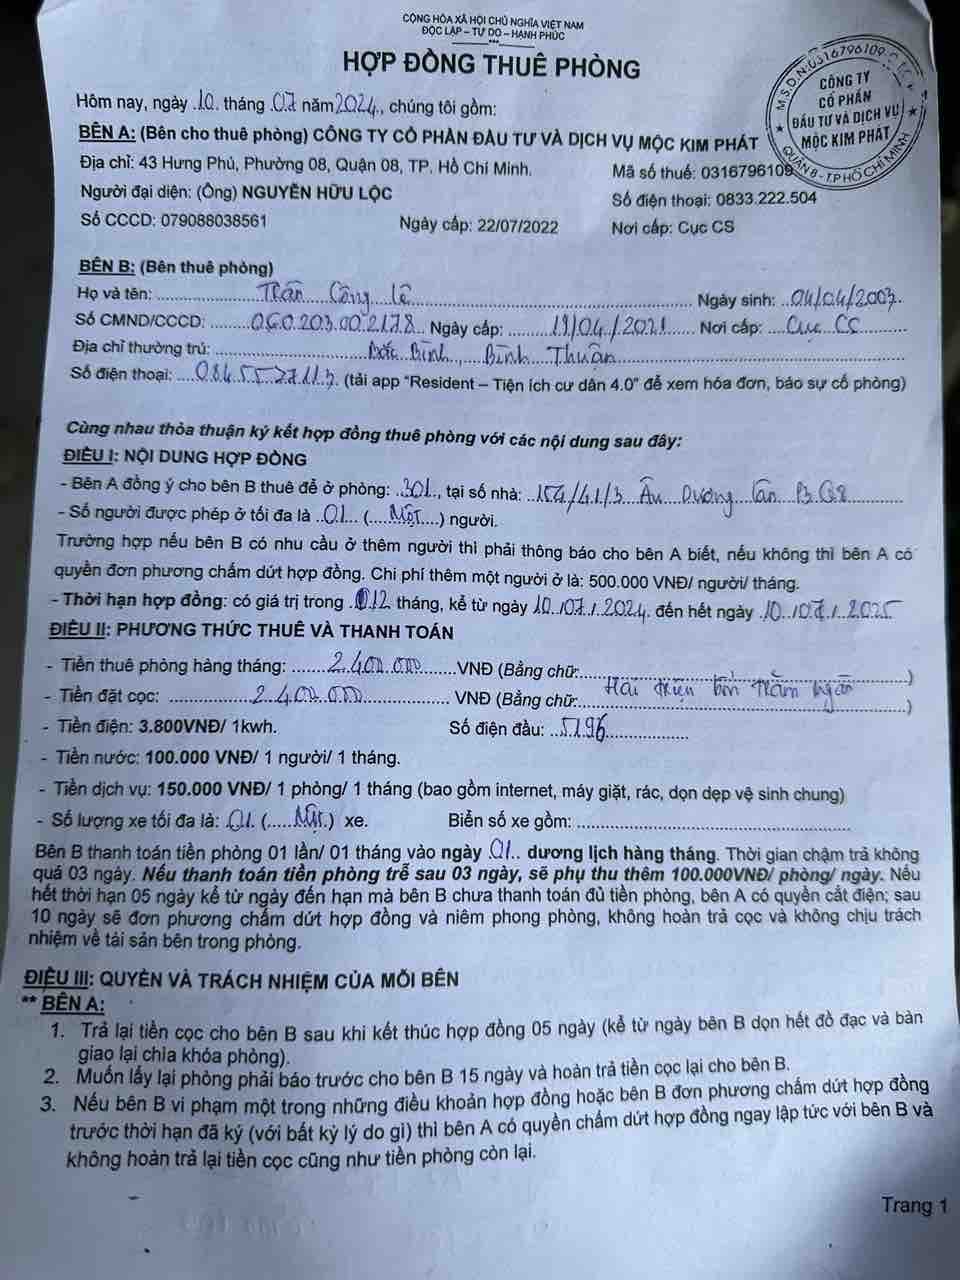 CỘNG HÒA XÃ HỘI CHỦ NGHĨA VIỆT NAM
ĐỘC LẬP – TỰ DO – HẠNH PHÚC
HỢP ĐỒNG THUÊ PHÒNG
M.S.D.N:0316796109
CÔNG TY
CỔ PHẦN
ĐẦU TƯ VÀ DỊCH VỤ
MỘC KIM PHÁT
QUẬN 8 - T.P HỒ CHÍ MINH
Hôm nay, ngày 10 tháng 07 năm 2024, chúng tôi gồm:
BÊN A: (Bên cho thuê phòng) CÔNG TY CỔ PHẦN ĐẦU TƯ VÀ DỊCH VỤ MỘC KIM PHÁT
Địa chỉ: 43 Hưng Phú, Phường 08, Quận 08, TP. Hồ Chí Minh. Mã số thuế: 0316796109
Người đại diện: (Ông) NGUYỄN HỮU LỘC Số điện thoại: 0833.222.504
Số CCCD: 079088038561 Ngày cấp: 22/07/2022 Nơi cấp: Cục CS
BÊN B: (Bên thuê phòng)
Họ và tên: Trần Công Lê Ngày sinh: 04/04/2003
Số CMND/CCCD: 060.203.00.2178 Ngày cấp: 19/04/2021 Nơi cấp: Cục CS
Địa chỉ thường trú: Bắc Bình, Bình Thuận
Số điện thoại: (tải app "Resident – Tiện ích cư dân 4.0" để xem hóa đơn, báo sự cố phòng)
Cùng nhau thỏa thuận ký kết hợp đồng thuê phòng với các nội dung sau đây:
ĐIỀU I: NỘI DUNG HỢP ĐỒNG
- Bên A đồng ý cho bên B thuê để ở phòng: 301, tại số nhà: 154/41/3 Âu Dương Lân P3 Q8
- Số người được phép ở tối đa là 01 (Một) người.
Trường hợp nếu bên B có nhu cầu ở thêm người thì phải thông báo cho bên A biết, nếu không thì bên A có
quyền đơn phương chấm dứt hợp đồng. Chi phí thêm một người ở là: 500.000 VNĐ/ người/ tháng.
- Thời hạn hợp đồng: có giá trị trong 12 tháng, kể từ ngày 10/07/2024 đến hết ngày 10/07/2025
ĐIỀU II: PHƯƠNG THỨC THUÊ VÀ THANH TOÁN
- Tiền thuê phòng hàng tháng: 2.400.000 VNĐ (Bằng chữ: )
- Tiền đặt cọc: 2.400.000 VNĐ (Bằng chữ: Hai triệu bốn trăm ngàn )
- Tiền điện: 3.800VNĐ/ 1kwh. Số điện đầu: 5196
- Tiền nước: 100.000 VNĐ/ 1 người/ 1 tháng.
- Tiền dịch vụ: 150.000 VNĐ/ 1 phòng/ 1 tháng (bao gồm internet, máy giặt, rác, dọn dẹp vệ sinh chung)
- Số lượng xe tối đa là: 01 (Một) xe. Biển số xe gồm:
Bên B thanh toán tiền phòng 01 lần/ 01 tháng vào ngày 01 dương lịch hàng tháng. Thời gian chậm trả không
quá 03 ngày. Nếu thanh toán tiền phòng trễ sau 03 ngày, sẽ phụ thu thêm 100.000VNĐ/ phòng/ ngày. Nếu
hết thời hạn 05 ngày kể từ ngày đến hạn mà bên B chưa thanh toán đủ tiền phòng, bên A có quyền cắt điện; sau
10 ngày sẽ đơn phương chấm dứt hợp đồng và niêm phong phòng, không hoàn trả cọc và không chịu trách
nhiệm về tài sản bên trong phòng.
ĐIỀU III: QUYỀN VÀ TRÁCH NHIỆM CỦA MỖI BÊN
** BÊN A:
1. Trả lại tiền cọc cho bên B sau khi kết thúc hợp đồng 05 ngày (kể từ ngày bên B dọn hết đồ đạc và bàn
giao lại chìa khóa phòng).
2. Muốn lấy lại phòng phải báo trước cho bên B 15 ngày và hoàn trả tiền cọc lại cho bên B.
3. Nếu bên B vi phạm một trong những điều khoản hợp đồng hoặc bên B đơn phương chấm dứt hợp đồng
trước thời hạn đã ký (với bất kỳ lý do gì) thì bên A có quyền chấm dứt hợp đồng ngay lập tức với bên B và
không hoàn trả lại tiền cọc cũng như tiền phòng còn lại.
Trang 1